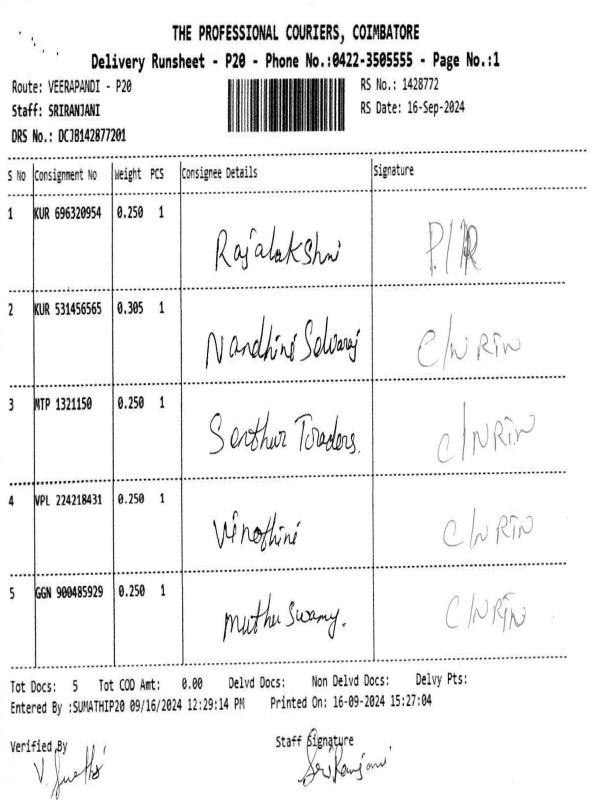 THE PROFESSIONAL COURIERS, COIMBATORE
Delivery Runsheet - P20 - Phone No.:0422-3505555 - Page No.:1
Route: VEERAPANDI - P20 RS No.: 1428772
Staff: SRIRANJANI RS Date: 16-Sep-2024
DRS No.: DCJB142877201
S No Consignment No Weight PCS Consignee Details Signature
1 KUR 696320954 0.250 1 Rajalakshmi P/R
2 KUR 531456565 0.305 1 Nandhini Selvaraj C/N RTN
3 MTP 1321150 0.250 1 Senthur Traders. C/N RTN
4 VPL 224218431 0.250 1 Vinothini C/N RTN
5 GGN 900485929 0.250 1 Muthu Swamy. C/N RTN
Tot Docs: 5 Tot COD Amt: 0.00 Delvd Docs: Non Delvd Docs: Delvy Pts:
Entered By :SUMATHIP20 09/16/2024 12:29:14 PM Printed On: 16-09-2024 15:27:04
Verified By Staff Signature
V. Sriranjani